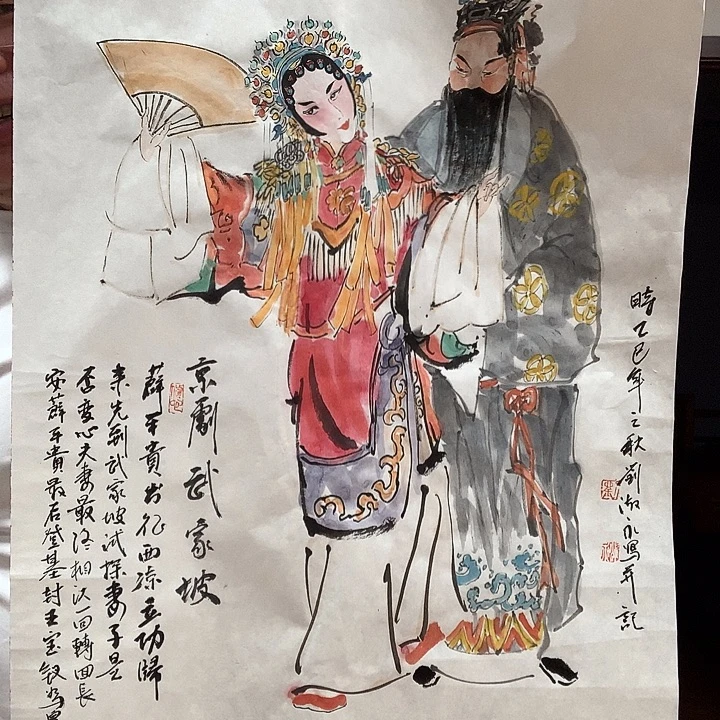 京劇 武家坡
薛平貴出征西凉立功歸
来先到武家坡试探妻子是
否变心夫妻最终相认回轉回長
安薛平貴最后登基封王宝钏为
時乙巳年之秋劉淑永寫并記